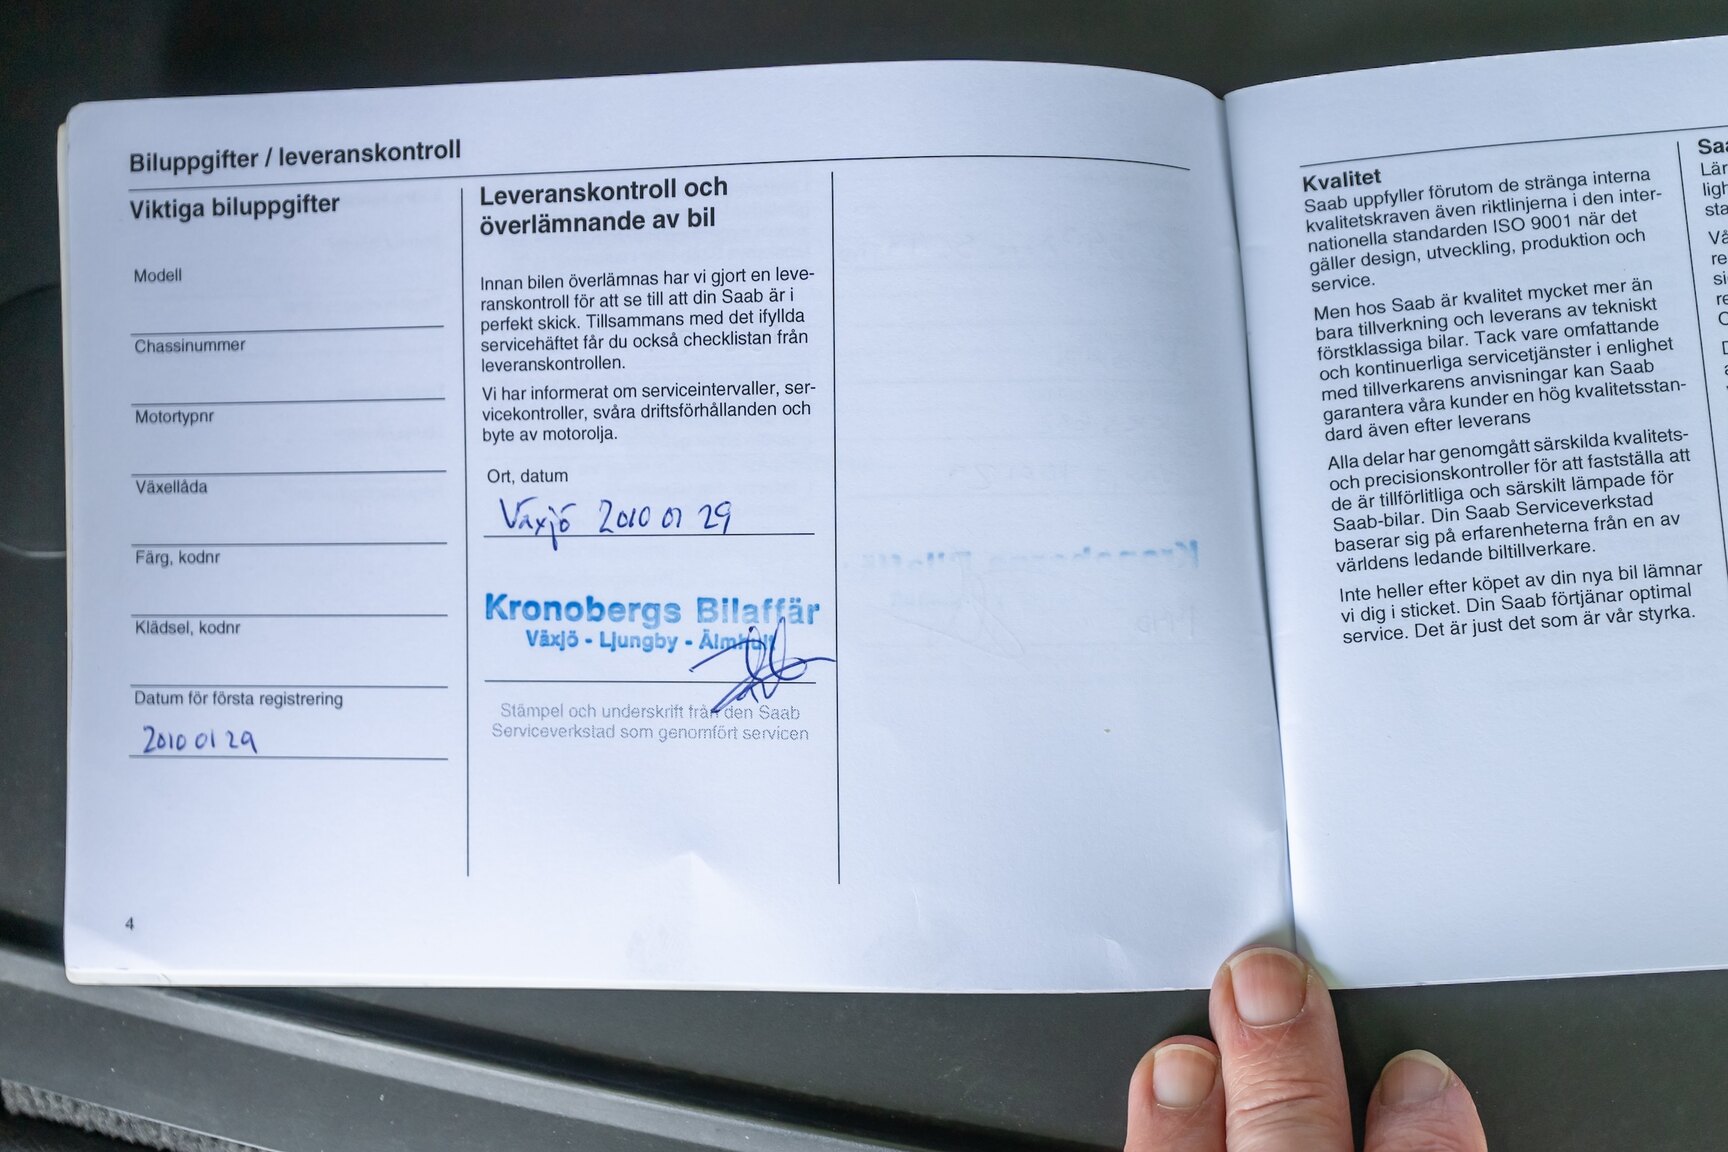 Biluppgifter / leveranskontroll
Viktiga biluppgifter
Modell
Chassinummer
Motortypnr
Växellåda
Färg, kodnr
Klädsel, kodnr
Datum för första registrering
2010 01 29
4
Leveranskontroll och
överlämnande av bil
Innan bilen överlämnas har vi gjort en leve-
ranskontroll för att se till att din Saab är i
perfekt skick. Tillsammans med det ifyllda
servicehäftet får du också checklistan från
leveranskontrollen.
Vi har informerat om serviceintervaller, ser-
vicekontroller, svåra driftsförhållanden och
byte av motorolja.
Ort, datum
Växjö 2010 01 29
Kronobergs Bilaffär
Växjö - Ljungby - Älmhult
Stämpel och underskrift från den Saab
Serviceverkstad som genomfört servicen
Kvalitet
Saab uppfyller förutom de stränga interna
kvalitetskraven även riktlinjerna i den inter-
nationella standarden ISO 9001 när det
gäller design, utveckling, produktion och
service.
Men hos Saab är kvalitet mycket mer än
bara tillverkning och leverans av tekniskt
förstklassiga bilar. Tack vare omfattande
och kontinuerliga servicetjänster i enlighet
med tillverkarens anvisningar kan Saab
garantera våra kunder en hög kvalitetsstan-
dard även efter leverans
Alla delar har genomgått särskilda kvalitets-
och precisionskontroller för att fastställa att
de är tillförlitliga och särskilt lämpade för
Saab-bilar. Din Saab Serviceverkstad
baserar sig på erfarenheterna från en av
världens ledande biltillverkare.
Inte heller efter köpet av din nya bil lämnar
vi dig i sticket. Din Saab förtjänar optimal
service. Det är just det som är vår styrka.